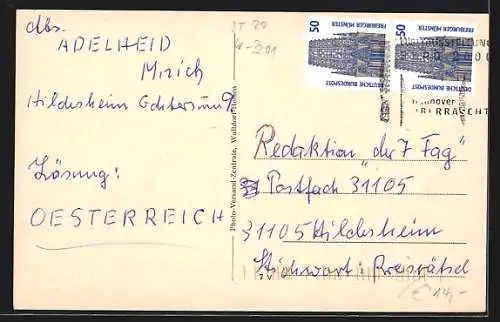 dbs.
ADELHEID
Mirich
Hildesheim
Lösung:
OESTERREICH
ST 22
4-301
Photo-Versand-Zentrale, Walldorf-Hessen
50
FREIBURGER MÜNSTER
DEUTSCHE BUNDESPOST
50
FREIBURGER MÜNSTER
DEUTSCHE BUNDESPOST
Hannover
Redaktion "der 7 Tag"
Postfach 31105
31105 Hildesheim
Stichwort: Preisrätsel
€ 14,-